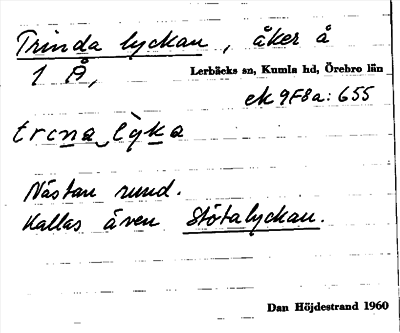 Trinda lyckan, åker å
1 Å, Lerbäcks sn, Kumla hd, Örebro län
ek 9F8a: 655
trena lyka
Nästan rund.
Kallas även Stötalyckan.
Dan Höjdestrand 1960